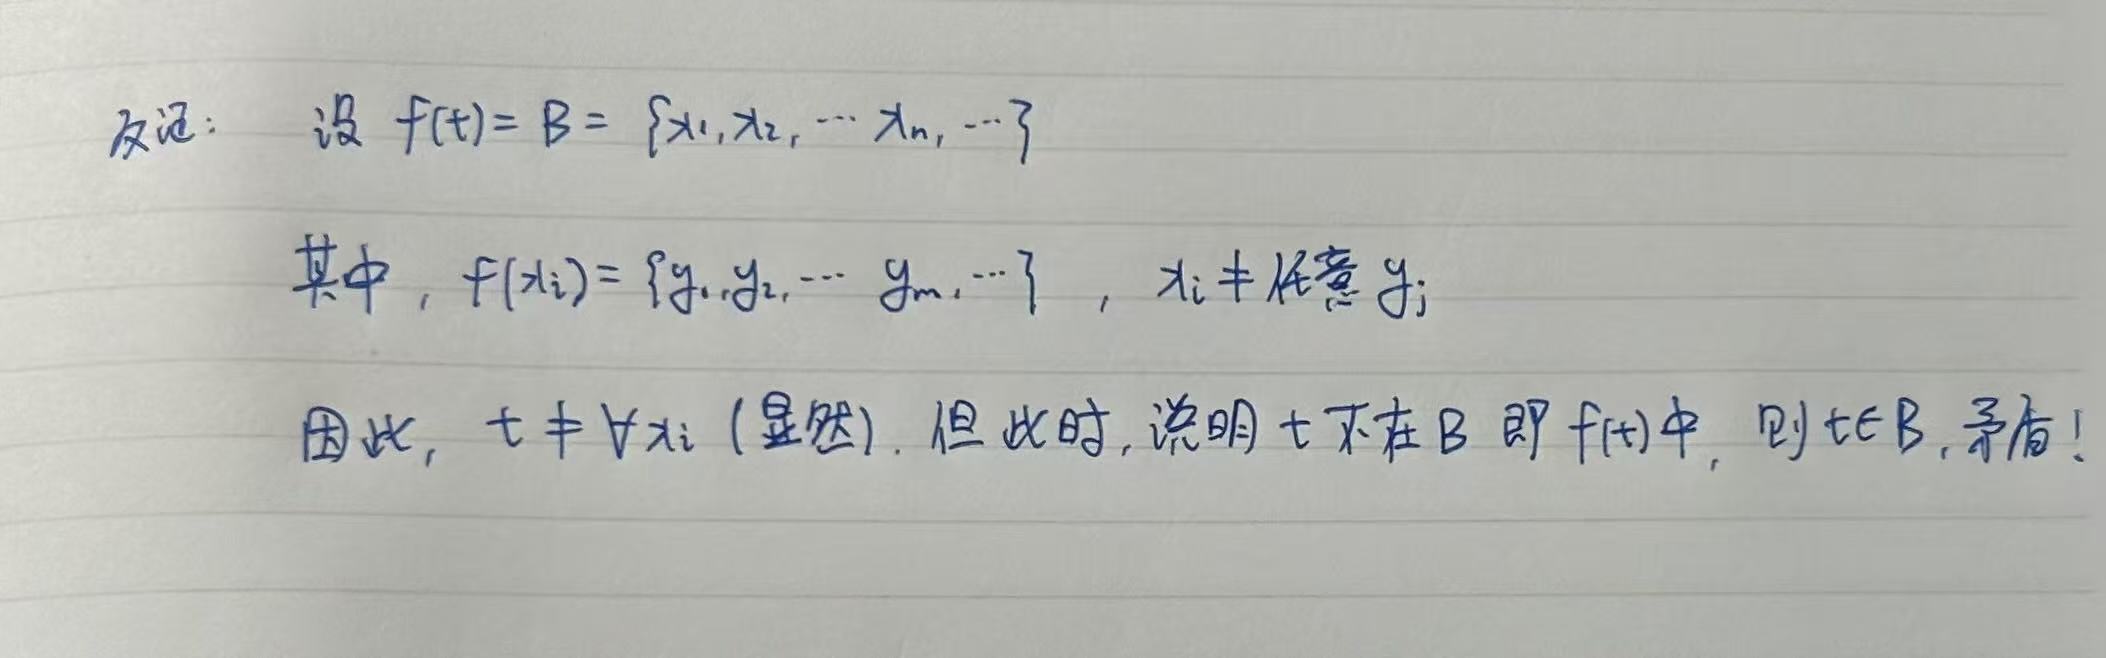 反证: 设 f(t)= B = {x₁, x₂, ⋯ xₙ, ⋯}
其中, f(xᵢ)= {y₁, y₂, ⋯ yₘ, ⋯} , xᵢ ≠ 任意 yⱼ
因此, t ≠ ∀xᵢ (显然). 但此时, 说明 t 不在 B 即 f(t)中, 则 t∈B, 矛盾!